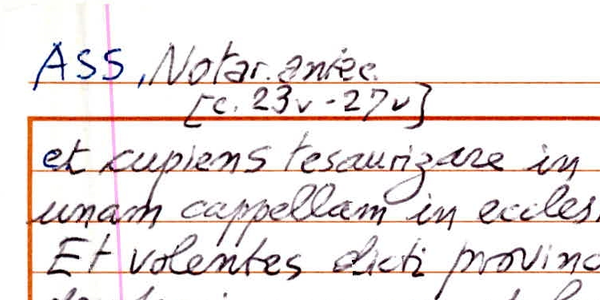 ASS, Notar. antec.
[c. 23v - 27v]
et cupiens tesaurizare in
unam cappellam in eccles
Et volentes dicti provinc